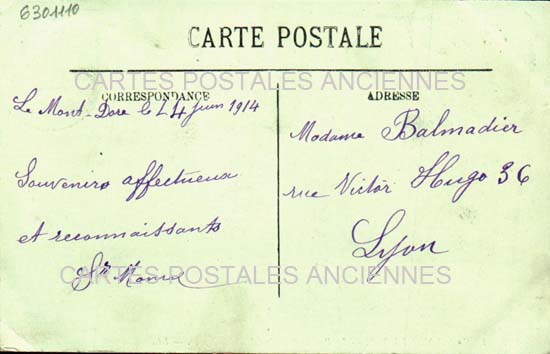 6301110
CARTE POSTALE
CARTES POSTALES ANCIENNES
CORRESPONDANCE
ADRESSE
Le Mont-Dore le 14 juin 1914
Souvenirs affectueux
et reconnaissants
Sr
Madame Balmadier
rue Victor Hugo 36
Lyon
CARTES POSTALES ANCIENNES